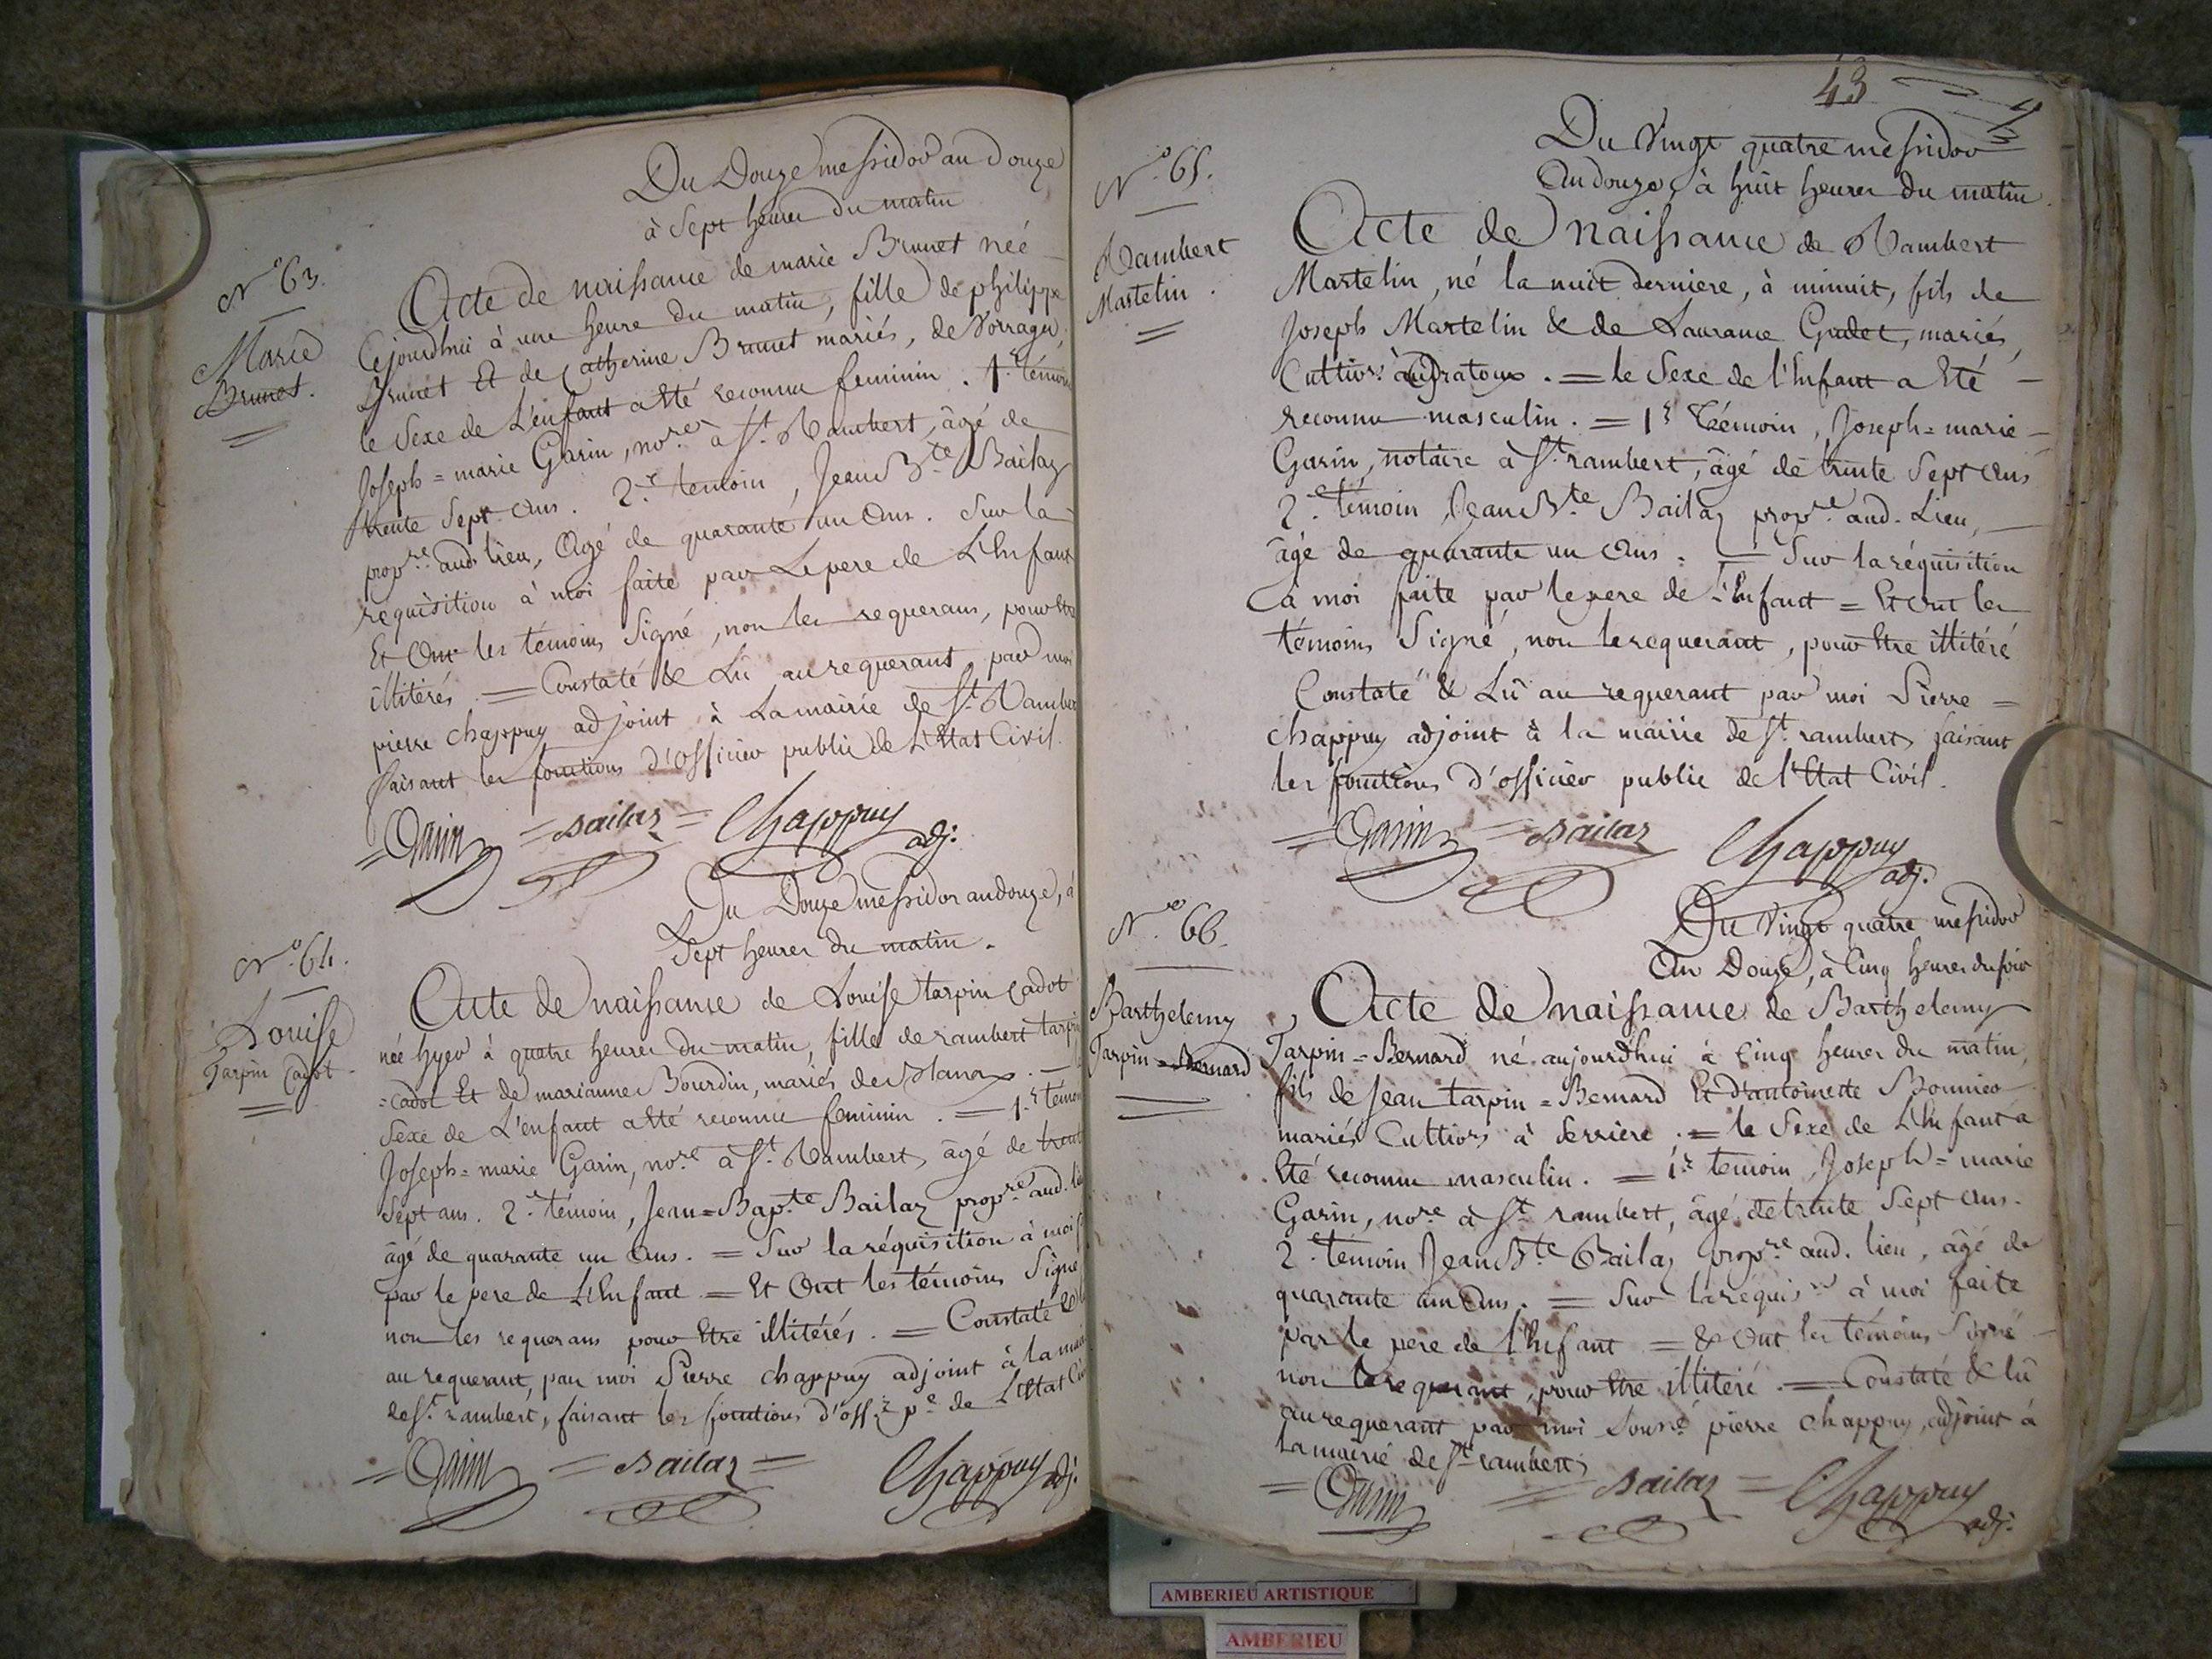 Du Douze messidor an douze
à Sept heures du matin
N.° 63.
Marie
Brunet.
Acte de naissance de marie Brunet née
Cejourdhui à une heure du matin, fille de philippe
Brunet Et de Catherine Brunet mariés, de
le Sexe de L'enfant a Eté reconnu feminin. 1.r témoin
Joseph = marie Garin, no.re à S.t Rambert, âgé de
trente Sept ans. 2.e temoin, Jean B.te Bailaz
prop.re aud. lieu, Agé de quarante un Ans. Sur la
requisition à moi faite par Le pere de L'Enfant
Et Ont les témoins Signé, non les requerans, pour Etre
illitérés. = Constaté & Lû au requerant par moi
pierre chappuy adjoint à La mairie de S.t Rambert
faisant les fonctions d'Officier public de L'Etat Civil.
= Garin = Bailaz = Chappuy
adj.
Du Douze messidor an douze, à
Sept heures du matin.
N.° 64.
Louise
Tarpin Cadot.
Acte de naissance de Louise tarpin Cadot
née hyer à quatre heures du matin, fille de rambert tarpin
=Cadot Et de marianne Bourdin, mariés de
Sexe de L'enfant a Eté reconnu feminin. = 1.r temoin
Joseph = marie Garin, no.re à S.t Rambert, âgé de trente
Sept ans. 2.e témoin, Jean=Bap.te Bailaz prop.re aud. lieu
âgé de quarante un Ans. = Sur la réquisition à moi f
par le pere de L'Enfant = Et Ont les témoins Signé
non les requerans pour Etre illitérés. = Constaté &
au requerant, par moi Pierre chappuy adjoint à la mai
de S.t rambert, faisant les fonctions d'off.r p.c de L'Etat Civ
= Garin = Bailaz = Chappuy adj.
43
Du Vingt quatre messidor
An douze, à huit heures du matin.
N.° 65.
Rambert
Martelin.
Acte de naissance de Rambert
Martelin, né la nuit derniere, à minuit, fils de
Joseph Martelin & de Laurance Gudet, mariés,
Cultiv.rs = le Sexe de l'Enfant a Eté
reconnu masculin. = 1.r Témoin, Joseph = marie
Garin, notaire à S.t rambert, âgé de trente Sept Ans
2.e témoin Jean B.te Bailaz prop.re aud. Lieu,
âgé de quarante un Ans. = Sur la réquisition
à moi faite par le pere de l'Enfant = Et Ont les
témoins Signé, non le requerant, pour Etre illitéré
Constaté & Lû au requerant par moi Pierre =
chappuy adjoint à la mairie de S.t rambert, faisant
les fonctions d'officier public de l'Etat Civil.
= Garin = Bailaz Chappuy
adj.
Du Vingt quatre messidor
An Douze, à Cinq heures du soir
N.° 66.
Barthelemy
Tarpin = Bernard
Acte de naissance de Barthelemy
Tarpin = Bernard né aujourdhui à Cinq heures du matin,
fils de Jean tarpin = Bernard Et d'antoinette Bonnier
mariés Cultiv.rs à Serriere. = le Sexe de L'Enfant a
Eté reconnu masculin. = 1.r temoin, Joseph = marie
Garin, no.re à S.t rambert, âgé de trente Sept Ans.
2.e témoin Jean B.te Bailaz prop.re aud. lieu, âgé de
quarante un Ans. = Sur la réquis.on à moi faite
par le pere de l'Enfant = & Ont les témoins Signé
non le requerant, pour Etre illitéré. = Constaté & lû
au requerant par moi Souss.né pierre chappuy, adjoint à
la mairie de S.t rambert,
= Garin = Bailaz = Chappuy
adj.
AMBERIEU ARTISTIQUE
AMBERIEU